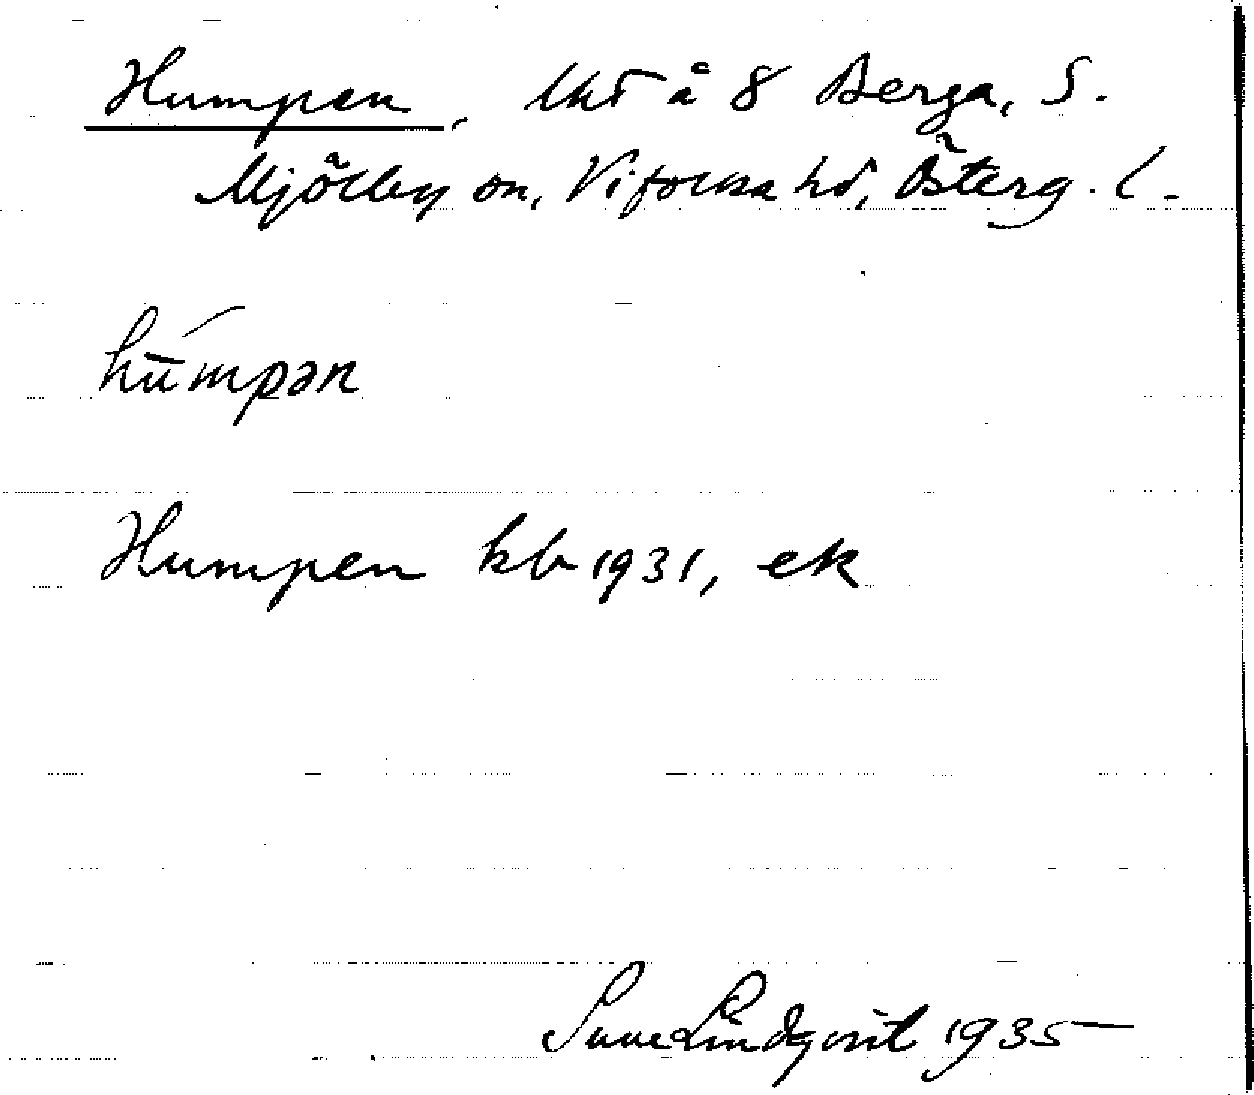 Humpen, lht å 8 Berga, S.
Mjölby sn, Vifolka hd, Österg. l.
hū́mpən
Humpen kb 1931, ek
Sune Lindqvist 1935